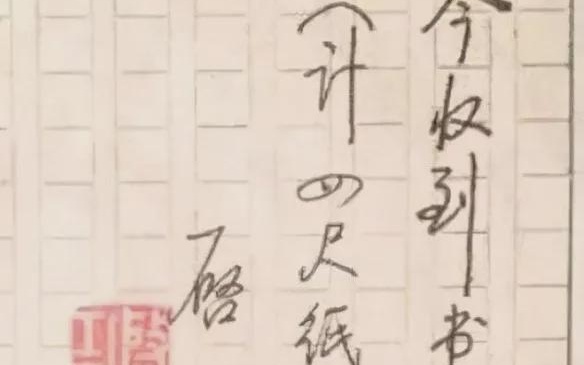 今收到书
（计四尺纸
启